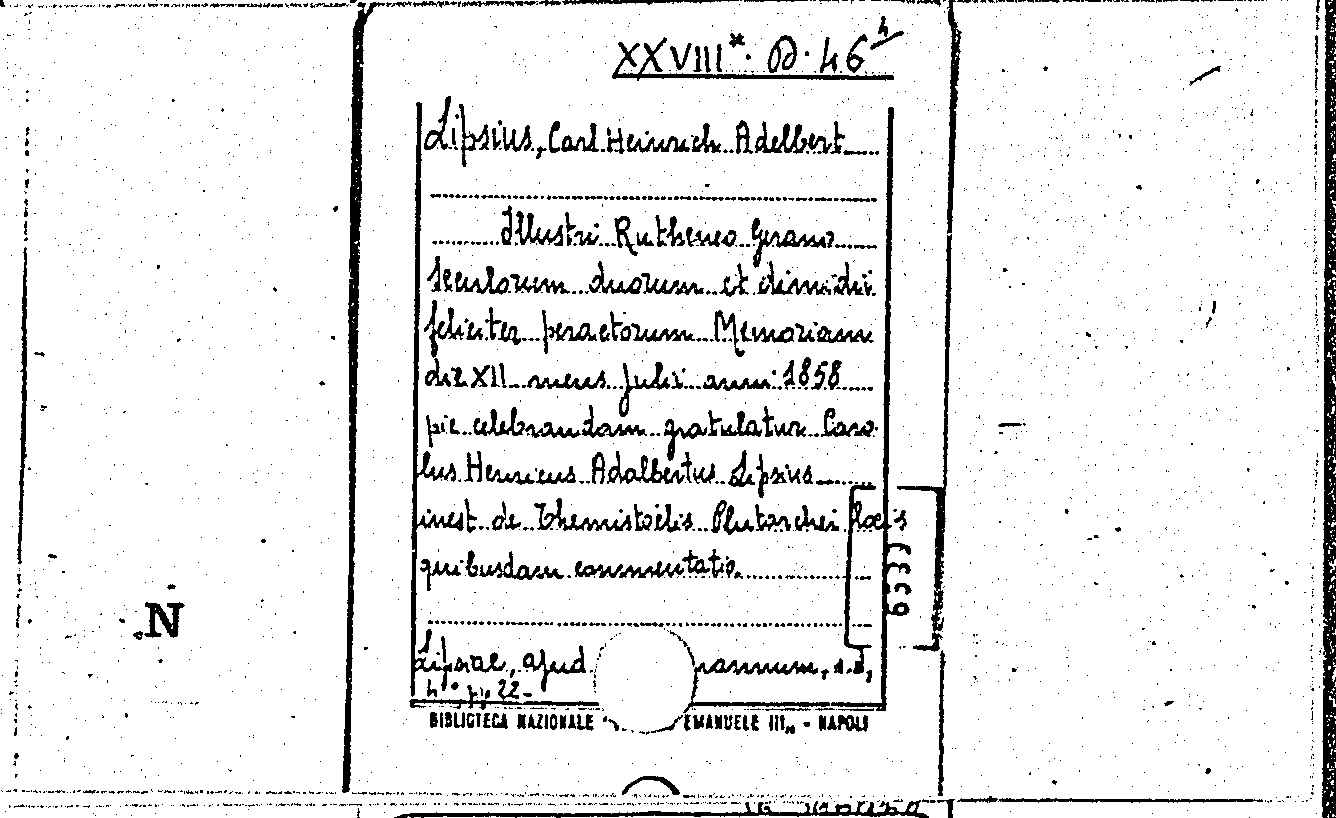 XXVIII*. D. 46⁴
Lipsius, Carl Heinrich Adelbert
Illustri Rutheneo Gerano
seculorum duorum et dimidii
feliciter peractorum Memoriam
die XII mens Julii anni 1858
pie celebrandam gratulatur Caro
lus Henricus Adalbertus Lipsius
inest de Themistoclis Plutarchei locis
quibusdam commentatio.
6539
Lipsiae, apud mannum, s.d,
4° p. 22-
BIBLIOTECA NAZIONALE EMANUELE III„ - NAPOLI
N